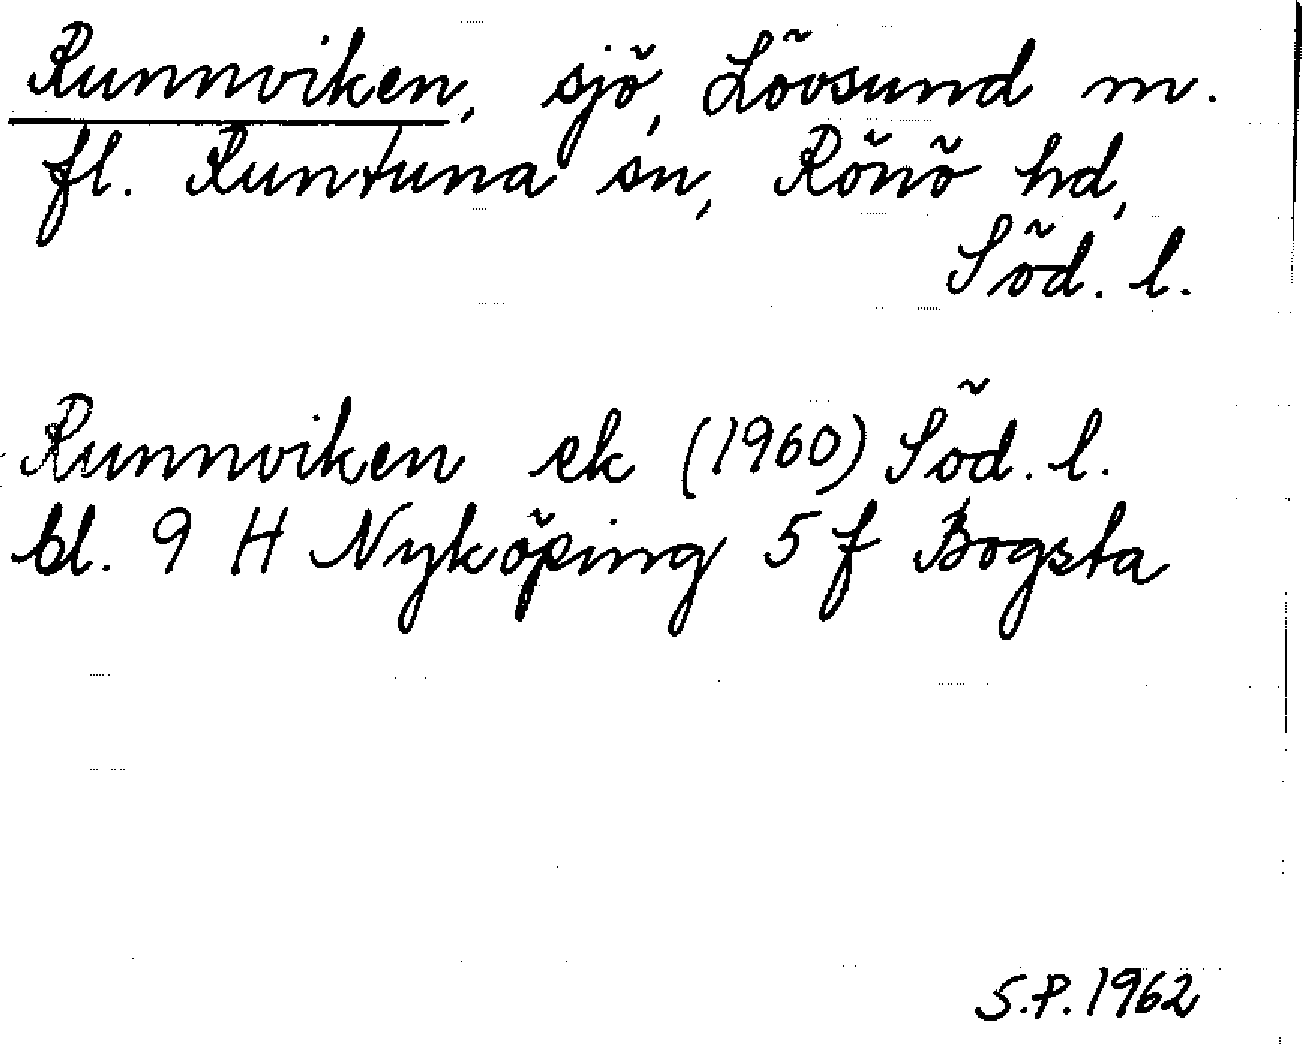 Runnviken, sjö, Lövsund m.
fl. Runtuna sn, Rönö hd,
Söd. l.
Runnviken ek (1960) Söd. l.
bl. 9 H Nyköping 5 f Bogsta
S.P. 1962